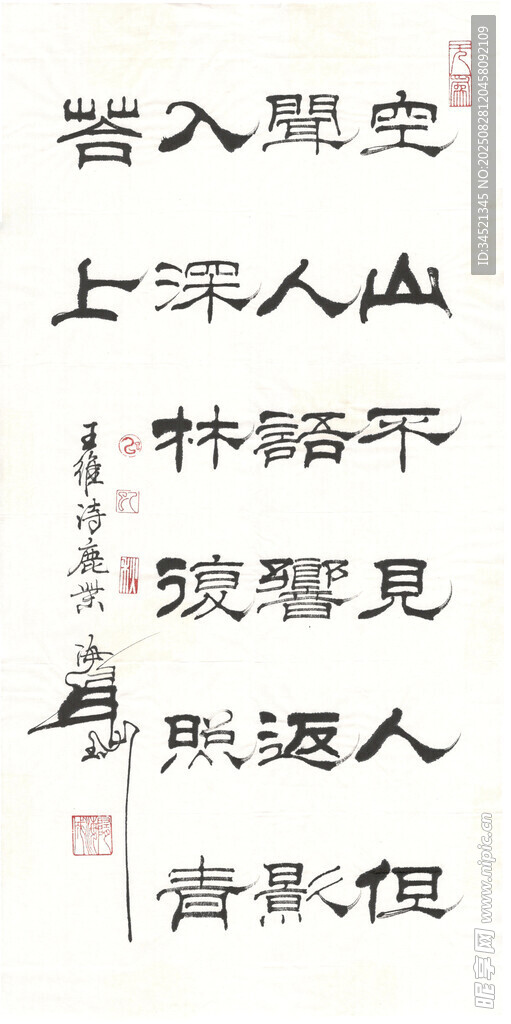 空山不見人但
聞人語響返影
入深林復照青
苔上
王維詩鹿柴 海
ID:34521345 NO:20250828120458092109
昵享网 www.nipic.cn